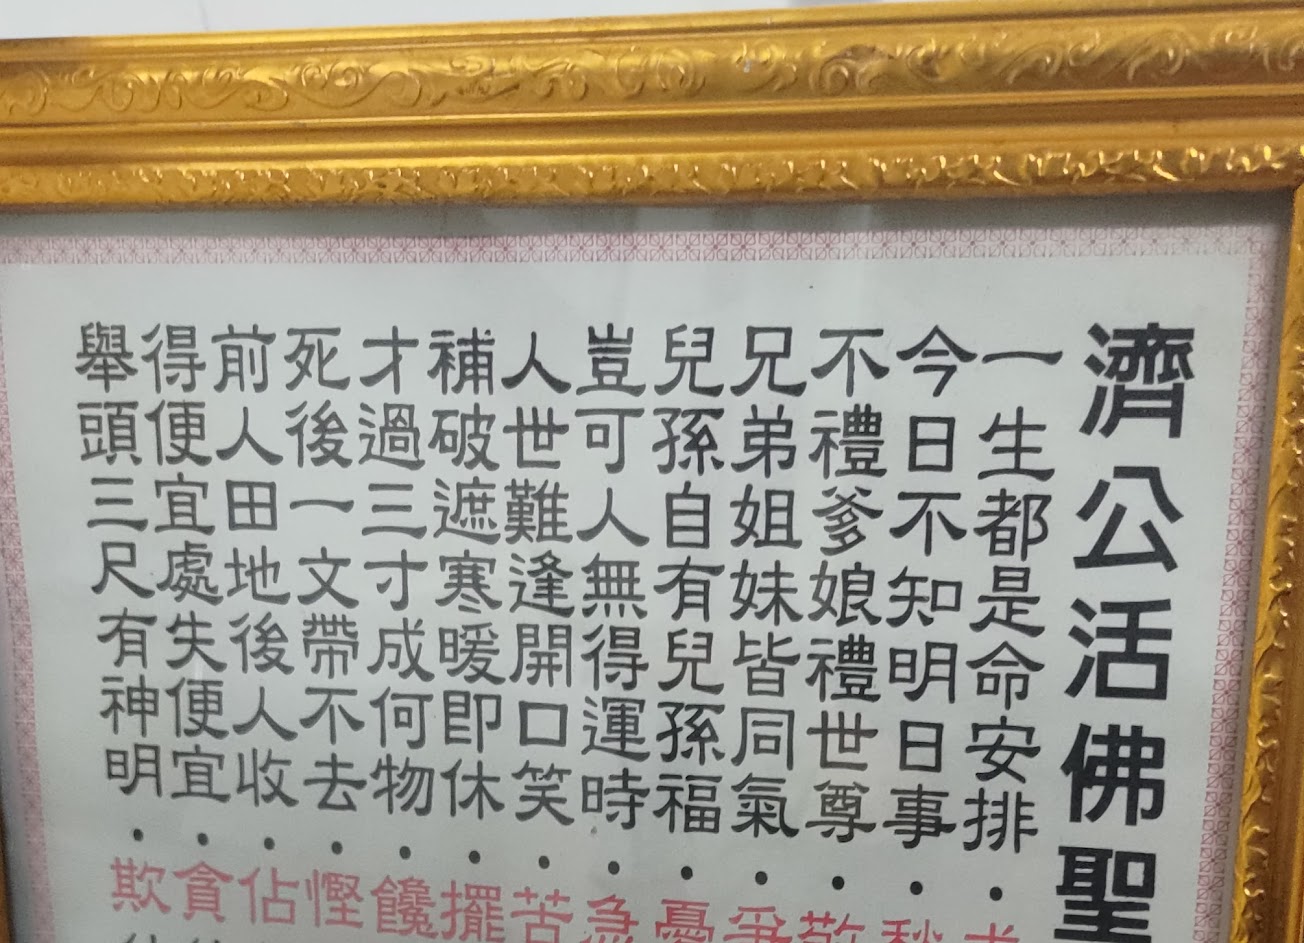 濟公活佛聖
一生都是命安排．
今日不知明日事．
不禮爹娘禮世尊．敬
兄弟姐妹皆同氣．爭
兒孫自有兒孫福．憂
豈可人無得運時．急
人世難逢開口笑．苦
補破遮寒暖即休．擺
才過三寸成何物．饞
死後一文帶不去．慳
前人田地後人收．佔
得便宜處失便宜．貪
舉頭三尺有神明．欺